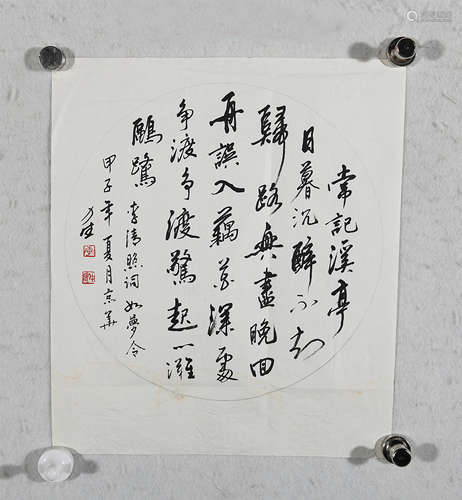 常記溪亭
日暮沉醉不知
歸路興盡晚回
舟誤入藕花深處
争渡争渡驚起一灘
鷗鷺 李清照詞如夢令
甲子年夏月京華